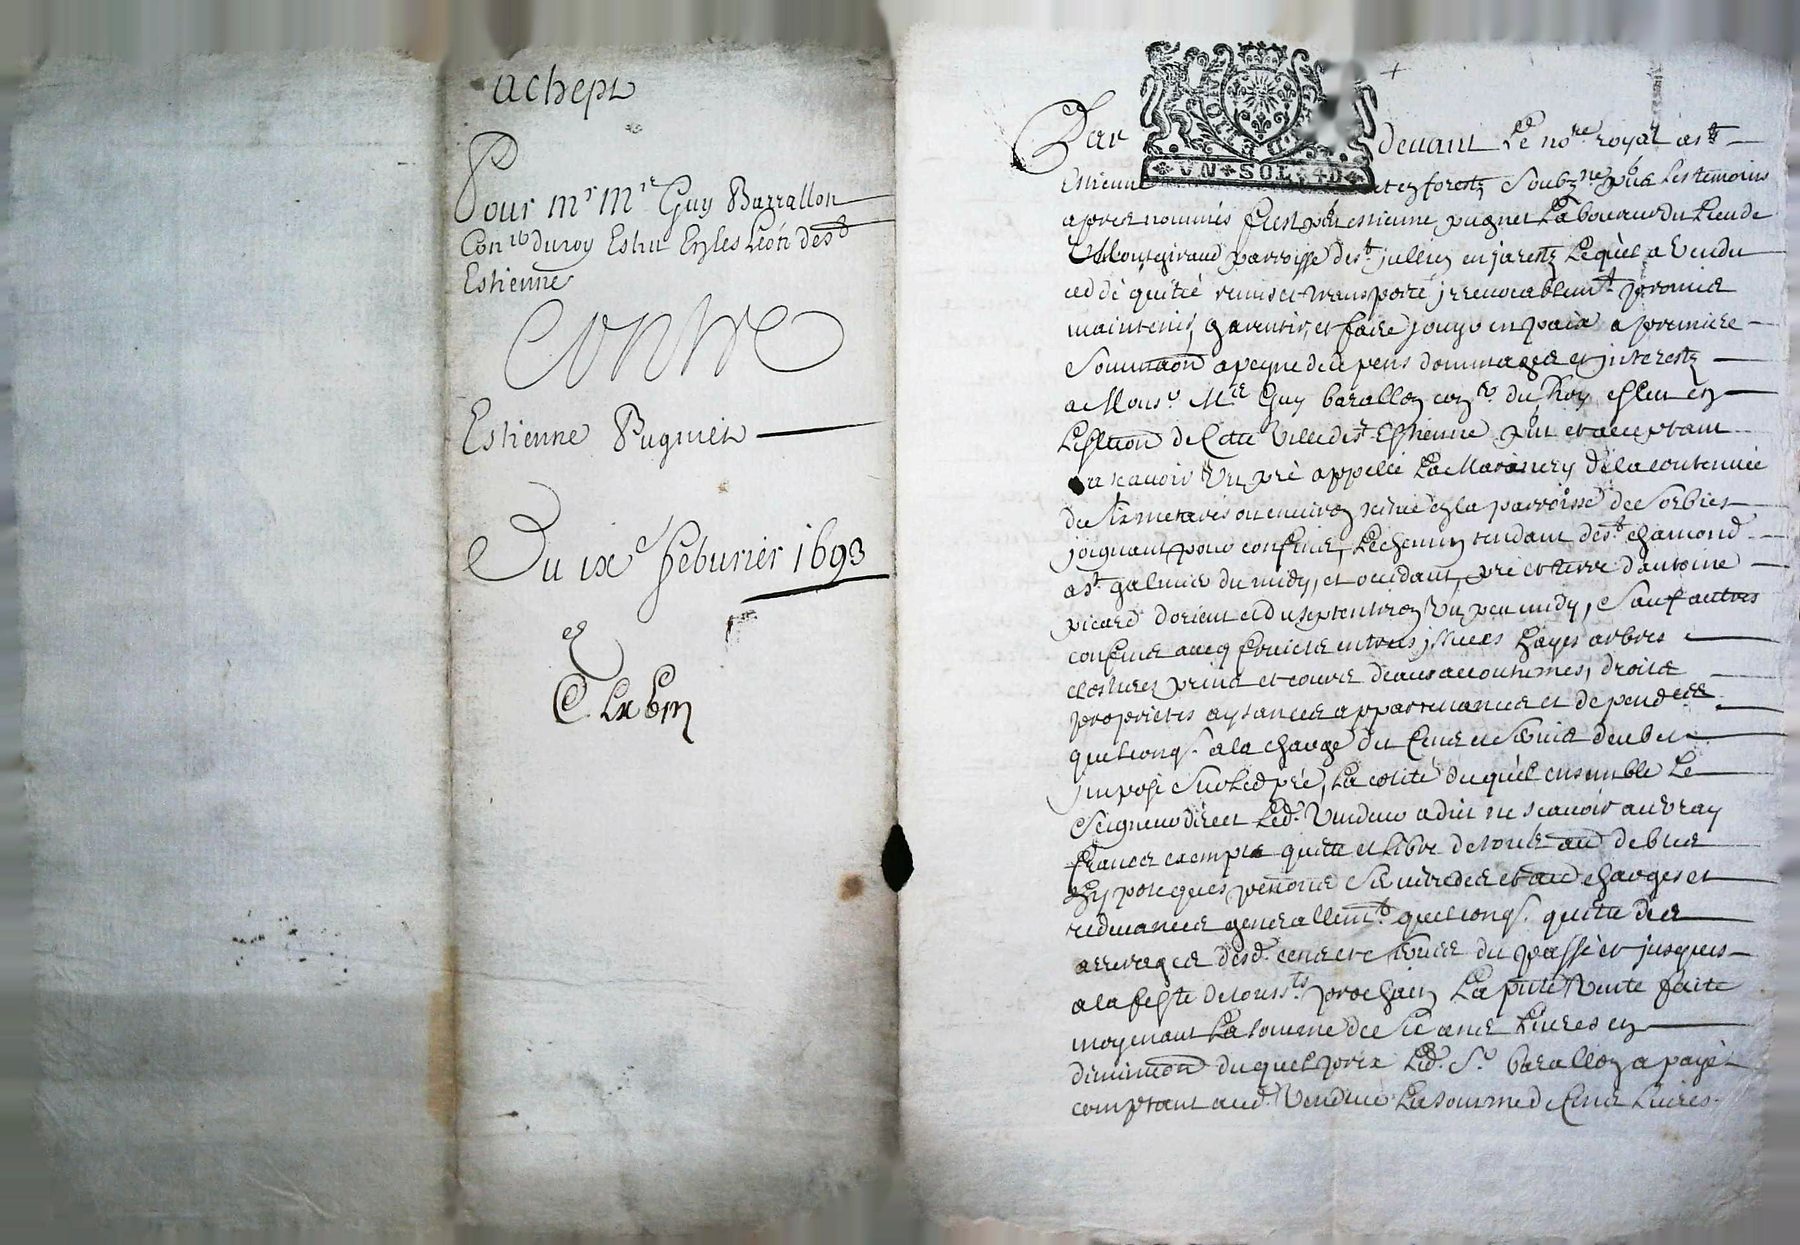 achept
Pour mr mre Guy Barrallon
Coner du roy Esleu En lesleon de st
Estienne
Contre
Estienne Pugniet
Du ixe febvrier 1693
VN SOL 4D
Par devant Le nore royal a st
Estienne et en forestz Soubzne pnts Les temoins
apres nommés fust pnt estienne pugnet Laboureur du Lieu de
Montgiraud parroisse de st jullien en jarestz Lequel a vendu
ceddé quitté remis et transporté jrrevocablemt promis
maintenir garentir et faire jouyr en paix a premiere
Sommaon a peyne de depens dommages et jnterestz
a Monsr Mre Guy barallon coner du Roy esleu en
Leslection de Cette Ville de st Estienne pnt et acceptant
a scavoir Un pré appellé La de la contenue
de Six meterés ou environ scitué en la parroisse de Sorbiers
joignant pour confins, Le chemin tendant de st chamond
a st galmier du midy, et occidant, pré et terre d'antoine
picard d'orient et du septentrion Un peu midy, Sauf autres
confins avecq ses fonds entrées, issues hayes arbres
prins et cours d'eaux accoutumés, droits
proprietes aysances appartenances et dependces
quelconqs. a la charge du Cens et Servis deub et
jmposé Sur Led pré, La cotité duquel ensemble Le
Seigneur direct Led. Vendeur a dit ne scavoir au vray
franc exempt quitte et libre de tous aues debtes
hypoteques pentions Servitudes et aues charges et
redevances generallemt quelconqs. quitte des
arrerages desd. cens et servis du passé et jusques
a la feste de toussts prochain La pnte Vente faite
moyenant La somme de Six cens Livres en
diminuon duquel prix Led. Sr barallon a payé
comptant aud. Vendeur La somme de Cens Livres